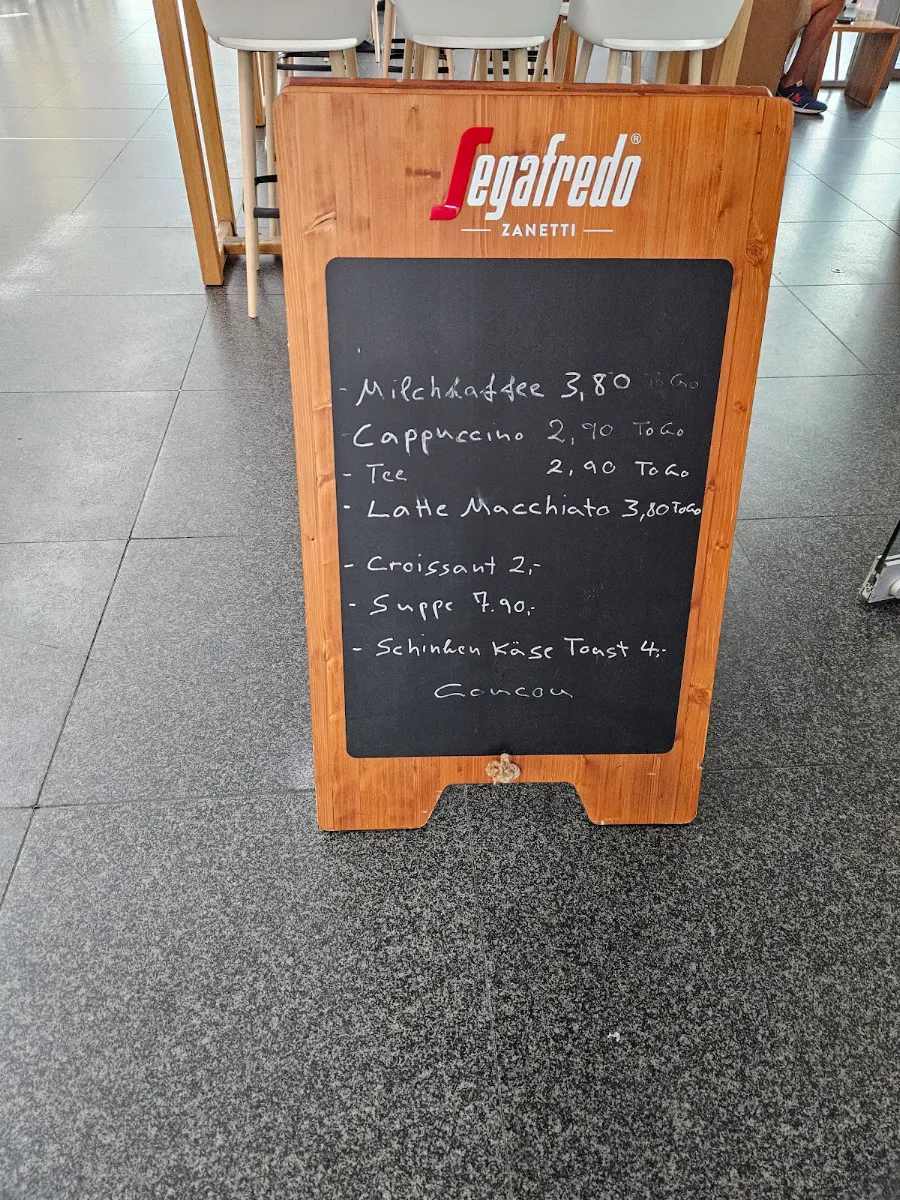 Segafredo®
ZANETTI
- Milchkaffee 3,80 To Go
Cappuccino 2,90 To Go
- Tee 2,90 To Go
- Latte Macchiato 3,80 To Go
- Croissant 2,-
- Suppe 7.90,-
- Schinken Käse Toast 4,-
Coucou